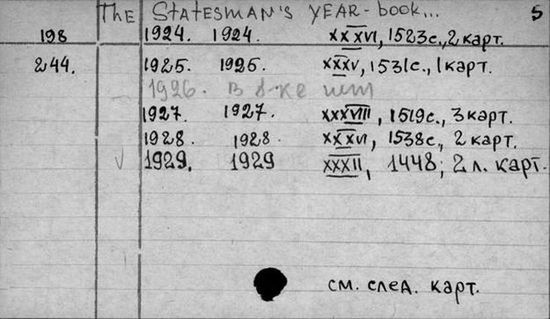 The Statesman's Year-book... 5
198 1924. 1924. XXXVI, 1523с., 2 карт.
244. 1925. 1925. XXXV, 1531с., 1 карт.
1926. в б-ке нет
1927. 1927. XXXVIII, 1519с., 3 карт.
1928. 1928. XXXVI, 1538с., 2 карт.
✓ 1929. 1929 XXXII, 1448; 2 л. карт.
см. след. карт.